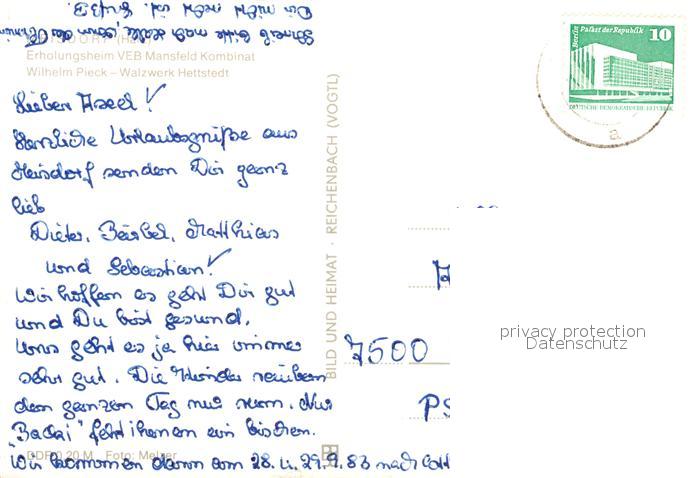 Erholungsheim VEB Mansfeld Kombinat
Wilhelm Pieck - Walzwerk Hettstedt
Lieber Axel!
Herzliche Urlaubsgrüße aus
senden Dir ganz
lieb
Dieter, Bärbel, Matthias
und Sebastian!
Wir hoffen es geht Dir gut
und Du bist gesund.
Uns geht es ja hier immer
sehr gut. Die Kinder
den ganzen Tag nur rum. Nur
fehlt ihnen ein bischen.
Wir kommen dann am 28. u. 29.9.83 nach
DDR 0,20 M Foto:
BILD UND HEIMAT · REICHENBACH (VOGTL)
Berlin Palast der Republik 10
DEUTSCHE DEMOKRATISCHE REPUBLIK
a
7500
PS
privacy protection
Datenschutz